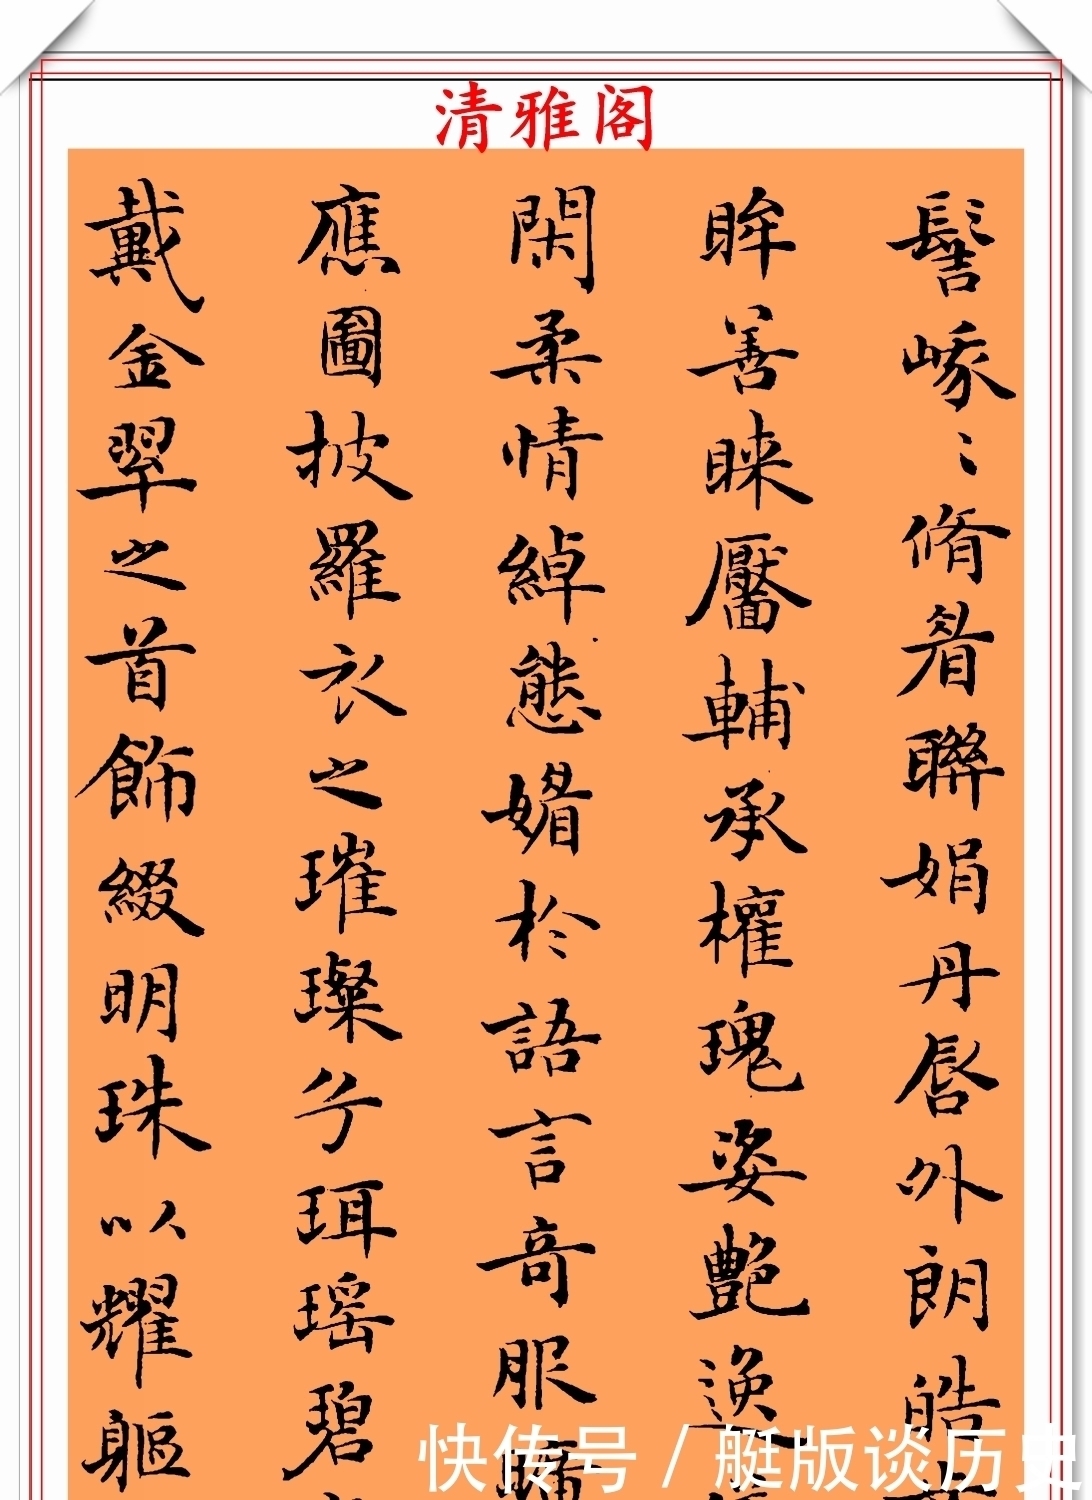 清雅阁
髻峩〻脩眉聯娟丹唇外朗皓
眸善睞靨輔承權瑰姿艷逸
閑柔情綽態媚於語言奇服
應圖披羅衣之璀璨兮珥瑶碧
戴金翠之首飾綴明珠以耀軀
快传号/艇版谈历史